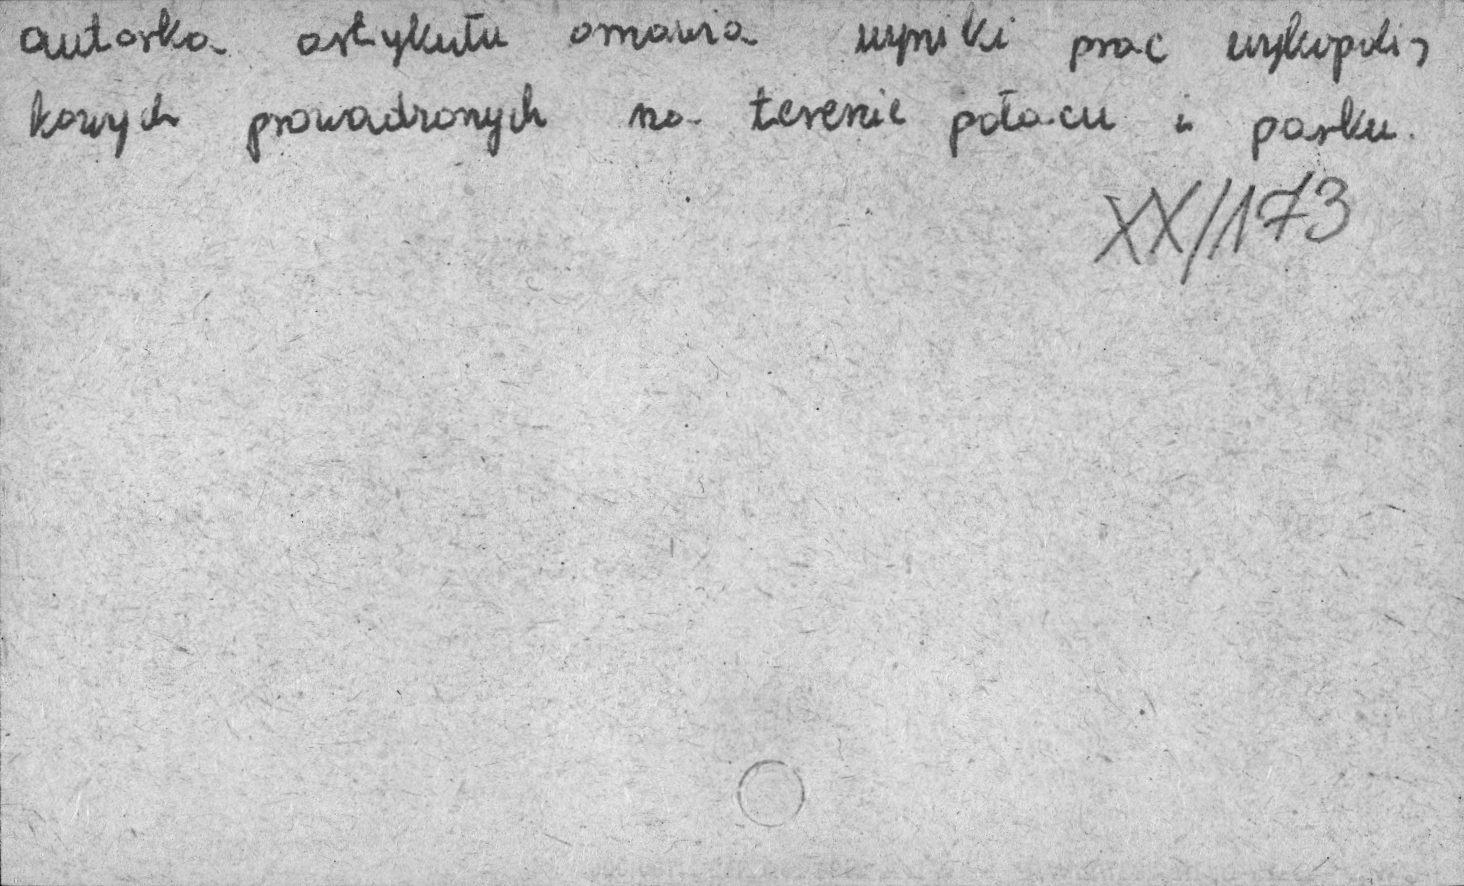 autorka artykułu omawia wyniki prac wykopalis
kowych prowadzonych na terenie pałacu i parku.
XX/173